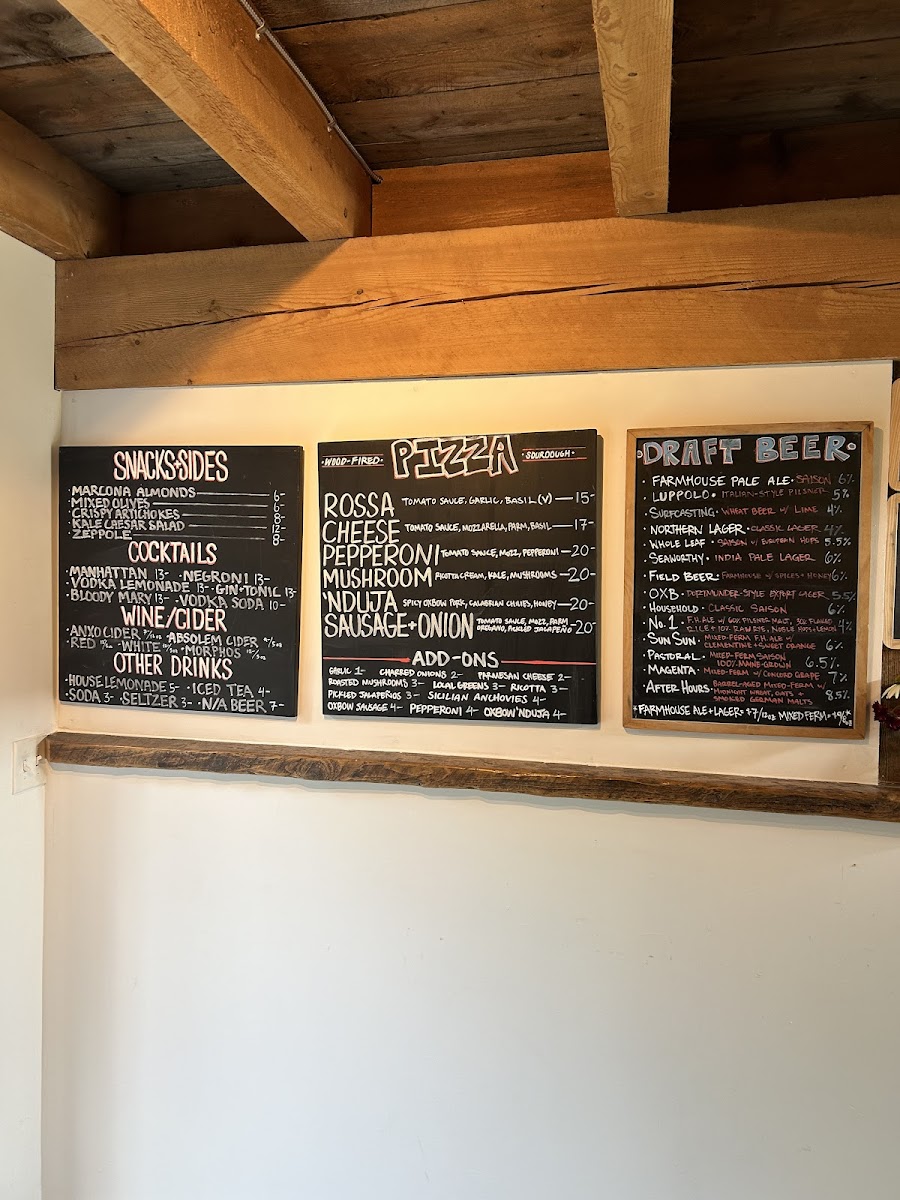 SNACKS+SIDES
MARCONA ALMONDS 6-
MIXED OLIVES 6-
CRISPY ARTICHOKES 8-
KALE CAESAR SALAD 12-
ZEPPOLE 8-
COCKTAILS
MANHATTAN 13- NEGRONI 13-
VODKA LEMONADE 13- GIN+TONIC 13-
BLOODY MARY 13- VODKA SODA 10-
WINE/CIDER
ANXO CIDER ABSOLEM CIDER
RED WHITE MORPHOS
OTHER DRINKS
HOUSE LEMONADE 5- ICED TEA 4-
SODA 3- SELTZER 3- N/A BEER 7-
WOOD-FIRED PIZZA SOURDOUGH
ROSSA TOMATO SAUCE, GARLIC, BASIL (V) 15-
CHEESE TOMATO SAUCE, MOZZARELLA, PARM, BASIL 17-
PEPPERONI TOMATO SAUCE, MOZZ, PEPPERONI 20-
MUSHROOM RICOTTA CREAM, KALE, MUSHROOMS 20-
'NDUJA SPICY OXBOW PORK, CALABRIAN CHILIES, HONEY 20-
SAUSAGE+ONION TOMATO SAUCE, MOZZ, PARM
OREGANO, PICKLED JALAPEÑO 20-
ADD-ONS
GARLIC 1- CHARRED ONIONS 2- PARMESAN CHEESE 2-
ROASTED MUSHROOMS 3- LOCAL GREENS 3- RICOTTA 3-
PICKLED JALAPEÑOS 3- SICILIAN ANCHOVIES 4-
OXBOW SAUSAGE 4- PEPPERONI 4- OXBOW 'NDUJA 4-
DRAFT BEER
FARMHOUSE PALE ALE SAISON 6%
LUPPOLO ITALIAN-STYLE PILSNER 5%
SURFCASTING WHEAT BEER W/ LIME 4%
NORTHERN LAGER CLASSIC LAGER 4%
WHOLE LEAF SAISON W/ EUROPEAN HOPS 5.5%
SEAWORTHY INDIA PALE LAGER 6%
FIELD BEER FARMHOUSE W/ SPICES + HONEY 6%
OXB DORTMUNDER-STYLE EXPORT LAGER 5.5%
HOUSEHOLD CLASSIC SAISON 6%
No. 1 F.H. ALE W/ 60% PILSNER MALT, 30% FLAKED
RICE + 10% RAW RYE, NOBLE HOPS + LEMON 4%
SUN SUN MIXED-FERM F.H. ALE W/
CLEMENTINE + SWEET ORANGE 6%
PASTORAL MIXED-FERM SAISON
100% MAINE-GROWN 6.5%
MAGENTA MIXED-FERM W/ CONCORD GRAPE 7%
AFTER HOURS BARREL-AGED MIXED-FERM W/
MIDNIGHT WHEAT, OATS +
SMOKED GERMAN MALTS 8.5%
*FARMHOUSE ALE + LAGER $7/12oz MIXED FERM